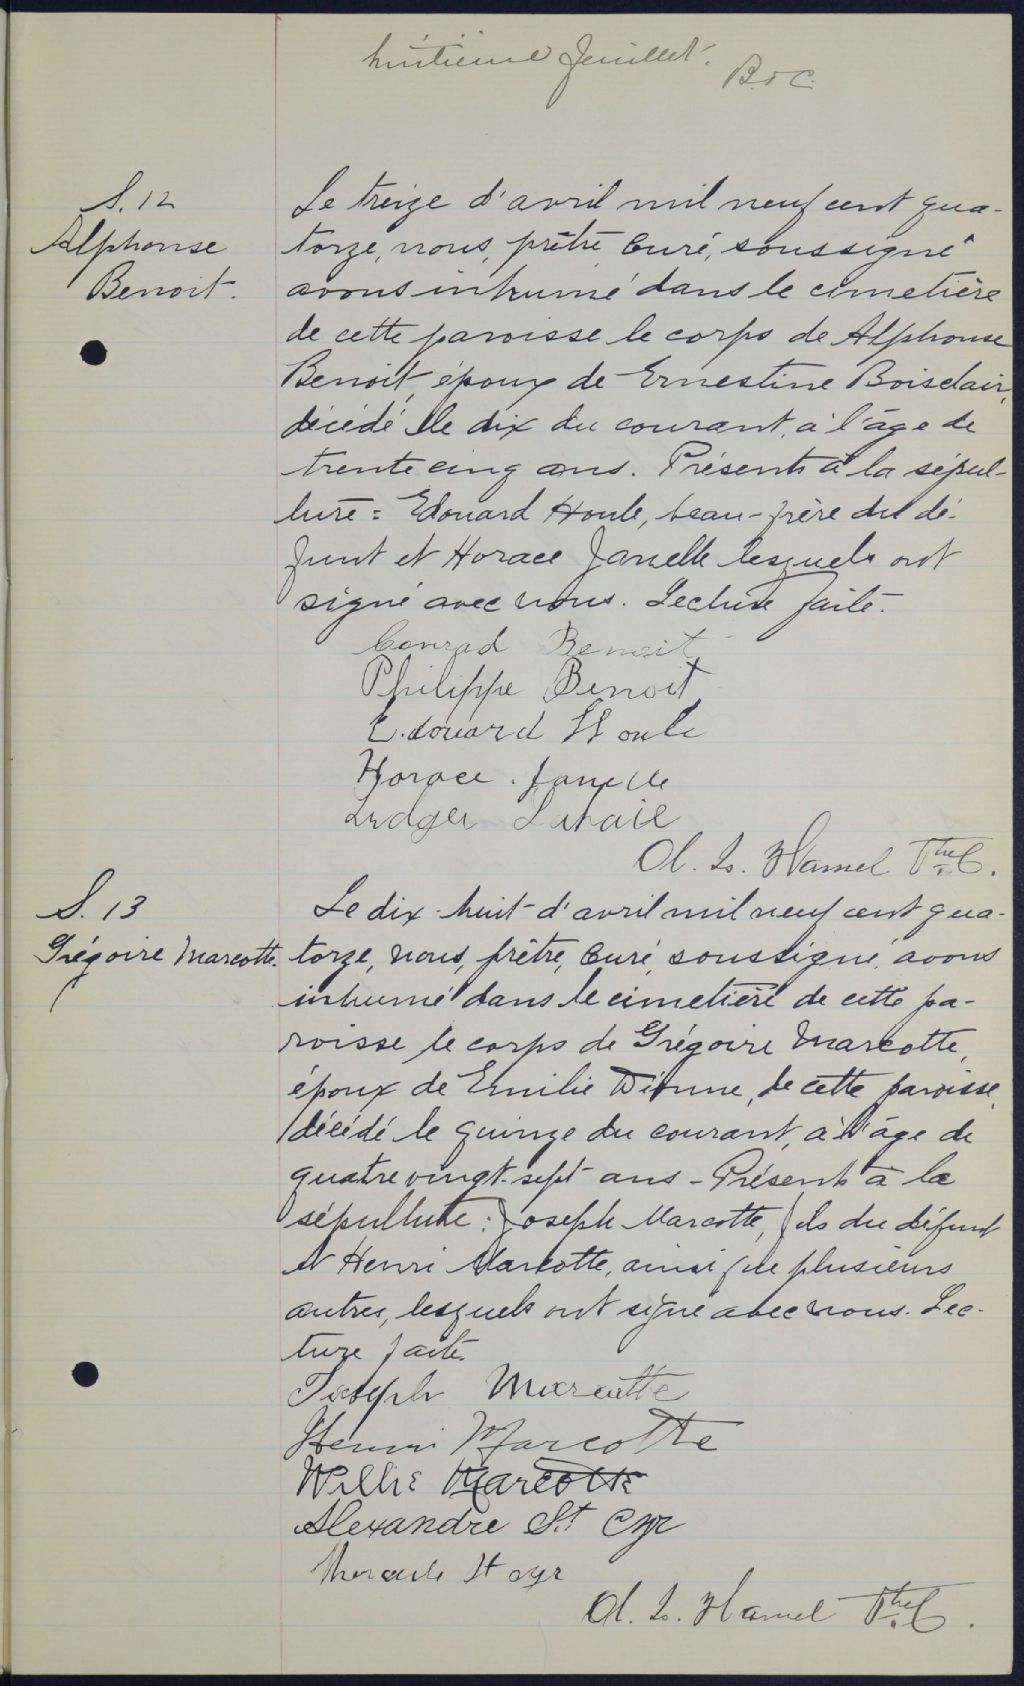 huitième feuillet.
B. & C.
S. 12
Alphonse
Benoit.
Le treize d'avril mil neuf cent qua-
torze, nous, prêtre, Curé, soussigné
avons inhumé dans le cimetière
de cette paroisse le corps de Alphonse
Benoit, époux de Ernestine Boisclair,
décédé le dix du courant, à l'âge de
trente cinq ans. Présents à la sépul-
ture : Edouard Houle, beau-frère du dé-
funt et Horace Janelle lesquels ont
signé avec nous. Lecture faite.
Conrad Benoit
Philippe Benoit
Edouard Houle
Horace Janelle
Ludger
O. L. Hamel Ptre C.
S. 13
Grégoire Marcotte.
Le dix-huit d'avril mil neuf cent qua-
torze, nous, prêtre, Curé, soussigné, avons
inhumé dans le cimetière de cette pa-
roisse le corps de Grégoire Marcotte,
époux de Emilie Dionne, de cette paroisse,
décédé le quinze du courant, à l'âge de
quatre vingt-sept ans - Présents à la
sépulture : Joseph Marcotte, fils du défunt
et Henri Marcotte, ainsi que plusieurs
autres, lesquels ont signé avec nous. Lec-
ture faite.
Joseph Marcotte
Henri Marcotte
Willie Marcotte
Alexandre St Cyr
St cyr
O. L. Hamel Ptre C.